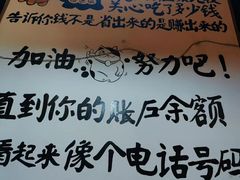 关心吃了多少钱
告诉你钱不是省出来的是赚出来的
加油 努力吧！
直到你的账户余额
看起来像个电话号码